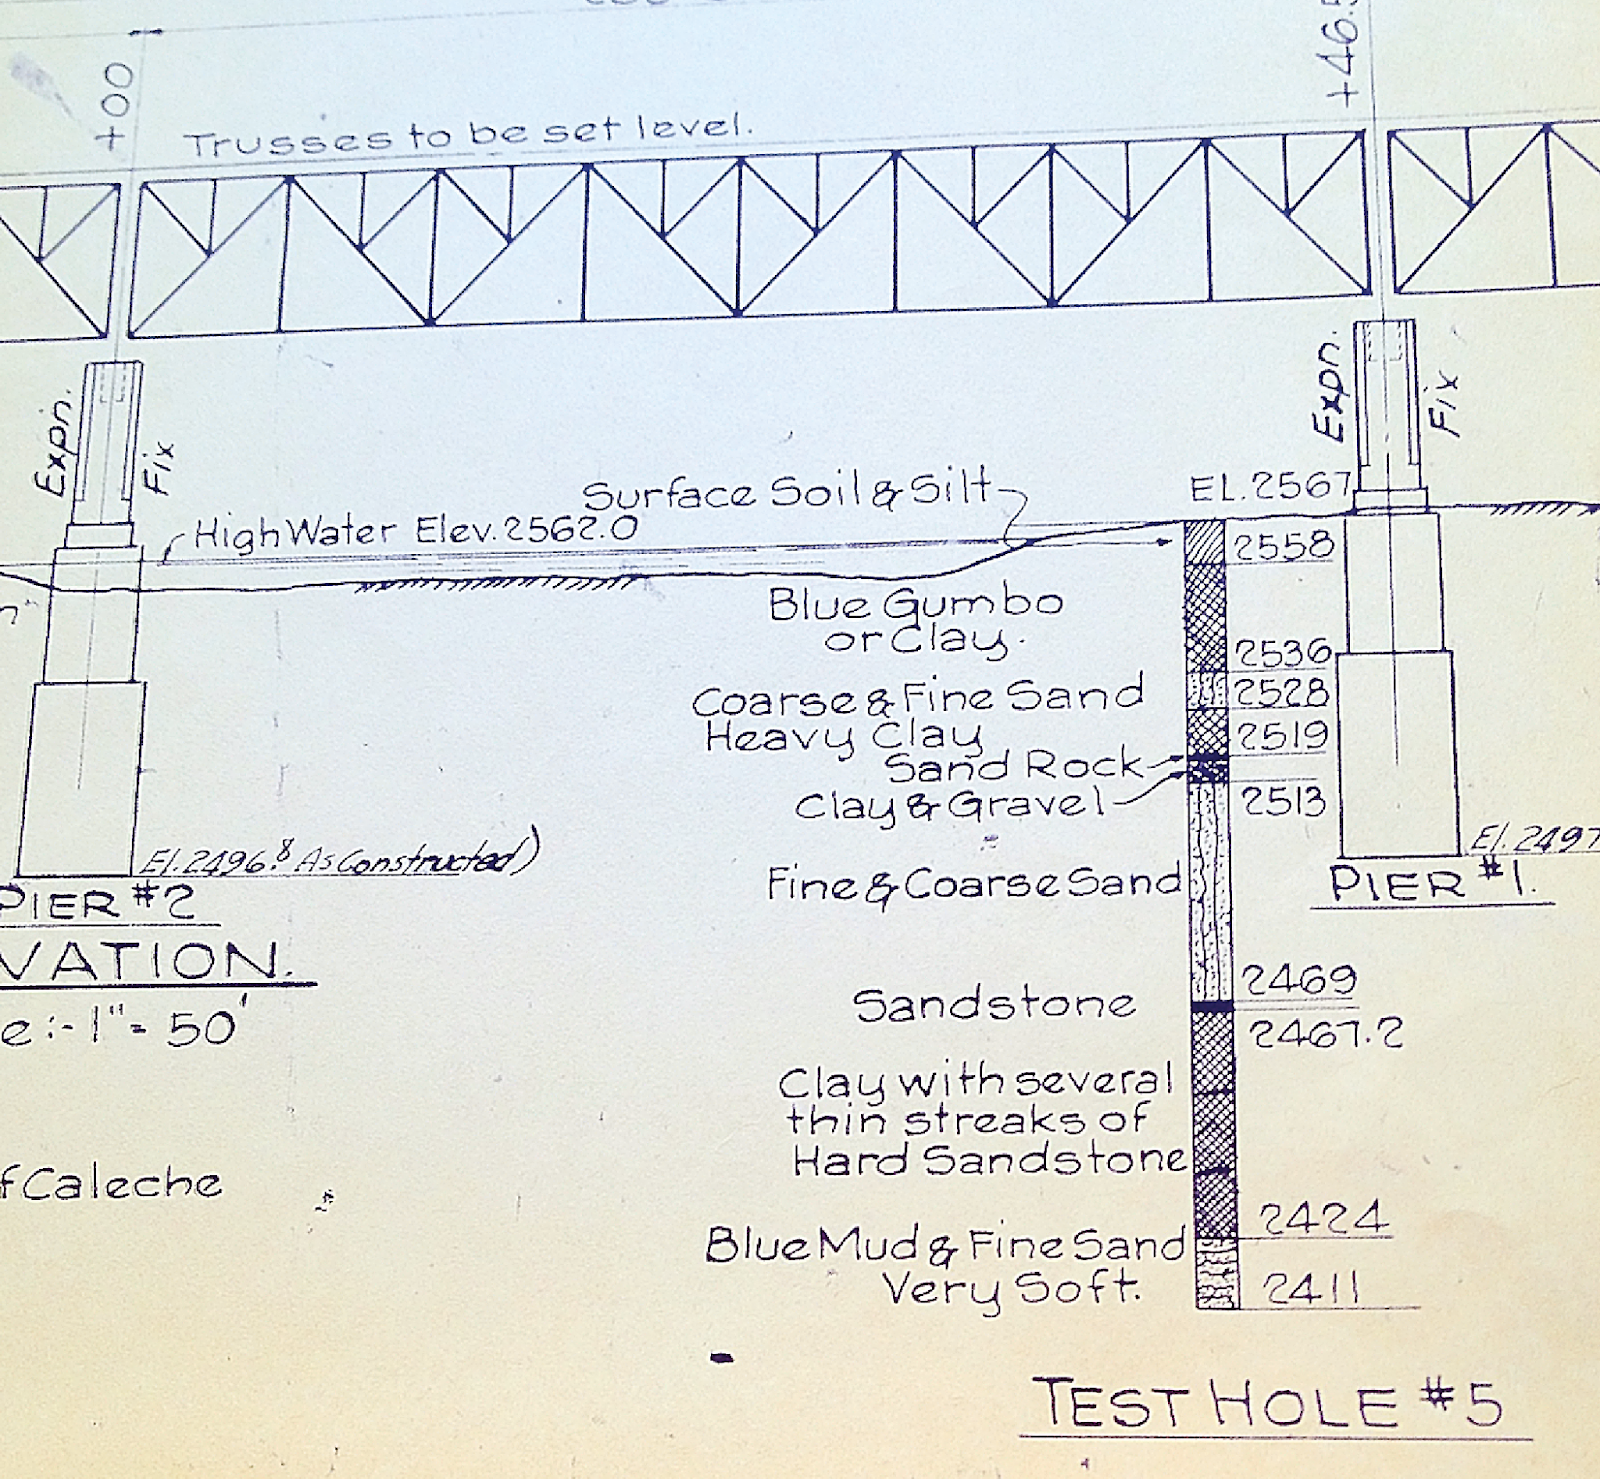 +00
+46.5
Trusses to be set level.
Expn.
Fix
Expn.
Fix
Surface Soil & Silt
EL. 2567
High Water Elev. 2562.0
2558
Blue Gumbo
or Clay.
2536
Coarse & Fine Sand
2528
Heavy Clay
2519
Sand Rock
Clay & Gravel
2513
El. 2496.8 As Constructed)
El. 2497
Fine & Coarse Sand
PIER #2
PIER #1.
VATION.
2469
Sandstone
e:- 1" = 50'
2467.2
Clay with several
thin streaks of
Hard Sandstone
f Caleche
2424
Blue Mud & Fine Sand
Very Soft.
2411
TEST HOLE #5